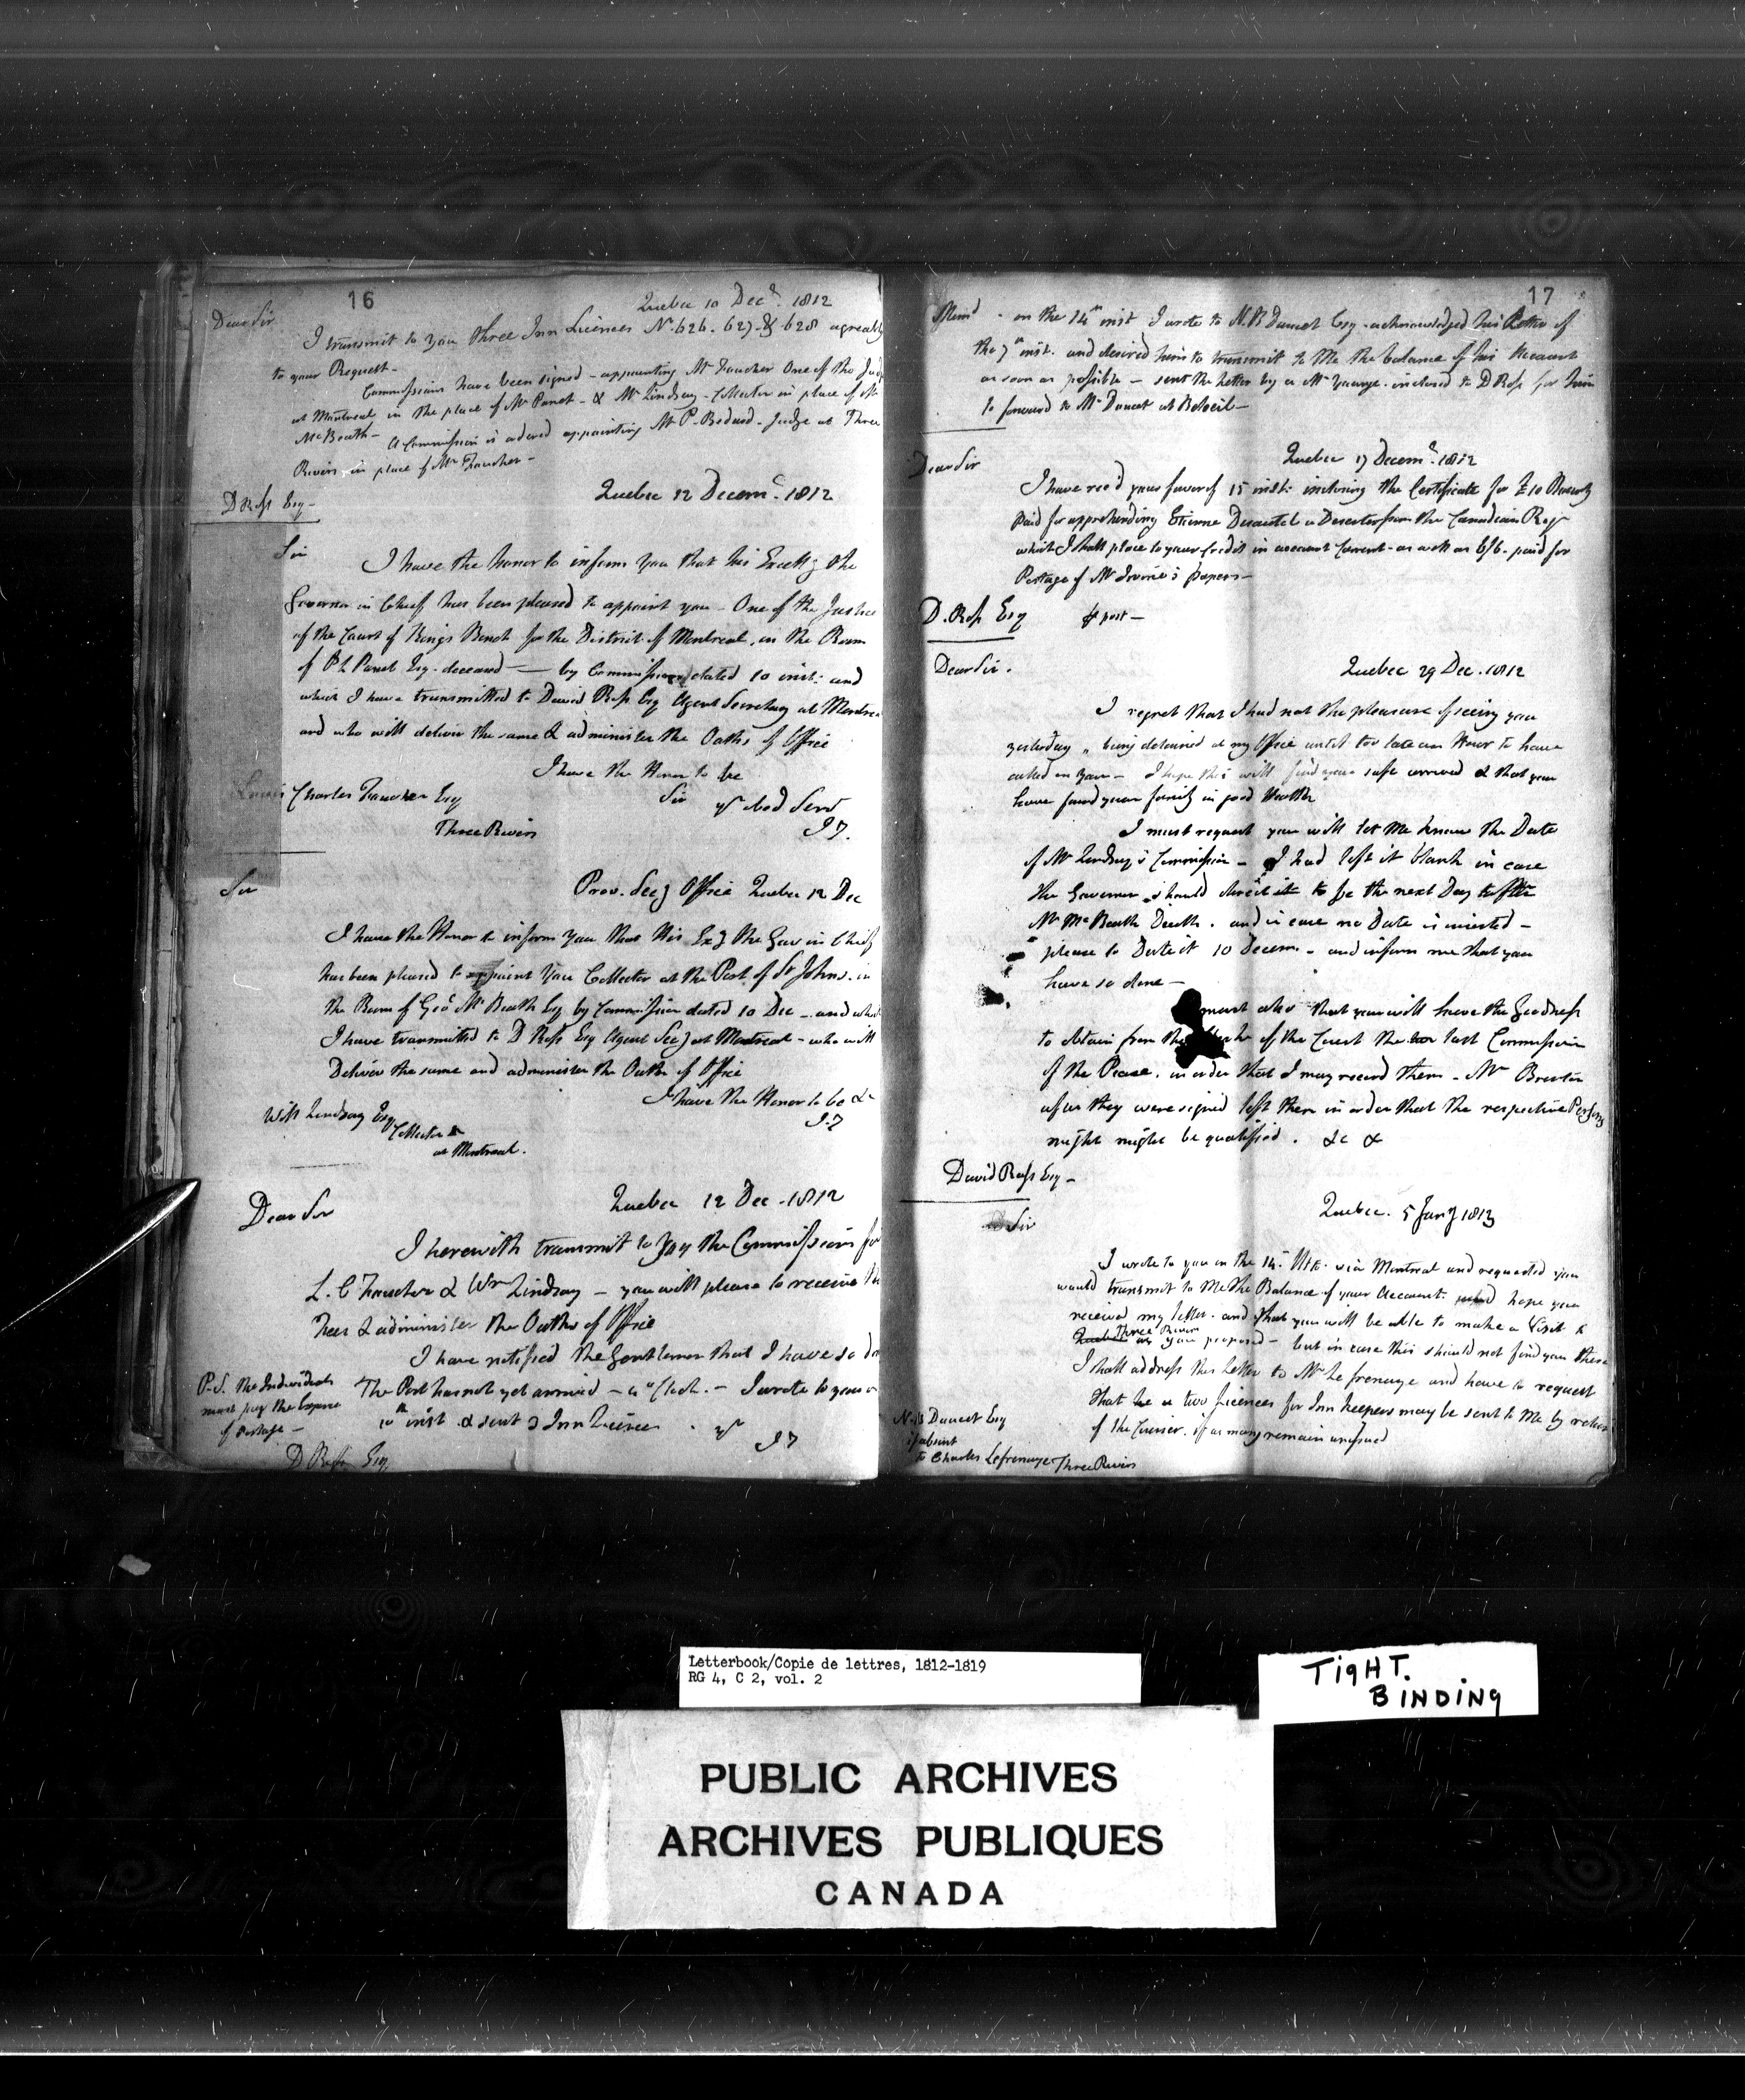 16
Quebec 10 Decr. 1812
Dear Sir
I transmit to you three Inn Licences No. 626. 627. & 628 agreably
to your Request-
Commissions have been signed - appointing Mr Foucher One of the
at Montreal in the place of Mr Panet - & Mr Lindsay - Collector in place of Mr
McBeath- A Commission is ordered appointing Mr P. Bedard - Judge at Three
Rivers in place of Mr Foucher -
D Ross Esq-
Quebec 12 Decemr. 1812
Sir
I have the Honor to inform you that his Excelly the
Governor in Chief has been pleased to appoint you - One of the Justice
of the Court of Kings Bench for the District of Montreal, in the Room
of P L Panet Esq. deceased - by Commission dated 10 inst: and
which I have transmitted to David Ross Esq Agent Secretary at Montrea
and who will deliver the same & administer the Oaths of Office
I have the Honor to be
Sir yr obed Servt
Louis Charles Foucher Esq
Three Rivers
J T.
Sir
Prov. Secy Office Quebec 12 Dec
I have the Honor to inform you that His Exy the Gov in Chief
has been pleased to appoint You Collector at the Port of St Johns. in
the Room of Geo McBeath Esq by Commission dated 10 Dec - and which
I have transmitted to D Ross Esq Agent Secy at Montreal - who will
Deliver the same and administer the Oaths of Office
I have the Honor to be &c
J T
Will Lindsay Esq
Collector
at Montreal.
Quebec 12 Dec - 1812
Dear Sir
I herewith transmit to you the Commissions for
L. C Foucher & Wm Lindsay - you will please to receive the
Fees & administer the Oaths of Office
I have notified the Gentlemen that I have so don
The Post has not yet arrived - 4 "Clock. - I wrote to you
10th inst & sent 3 Inn Licences . yr
J T
P.S. The Individuals
must pay the Expence
of Postage -
D Ross Esq
17
Memd - on the 14th inst I wrote to N. B Doucet Esq - acknowledged his Letter of
the 7th inst. and desired him to transmit to Me the balance of his Account
as soon as possible - sent the letter by a Mr Younge - inclosed to D Ross for him
to forward to Mr Doucet at Beloeil-
Quebec 17 Decemr. 1812
Dear Sir
I have recd your favor of 15 inst: inclosing the Certificate for £10 Bounty
paid for apprehending Etienne Desautel a Deserter from the Canadian Regt
which I shall place to your Credit in account Current - as well as 6/6 - paid for
Postage of Mr Irvine's papers-
D. Ross Esq
post-
Dear Sir.
Quebec 29 Dec. 1812
I regret that I had not the pleasure of seeing you
yesterday, being detained at my Office until too late an Hour to have
called on you - I hope this will find your safe arrived & that you
have found your family in good Health
I must request you will let me know the Date
of Mr Lindsay's Commission - I had left it blank in case
the Governor should direct it to be the next Day to after
Mr McBeath Death. and in case no Date is inserted -
please to Date it 10 Decem. - and inform me that you
have so done -
must also that you will have the Goodness
to obtain from the of the Court the two last Commission
of the Peace. in order that I may record them - Mr Brenton
after they were signed left them in order that the respective Persons
might might be qualified . &c &
David Ross Esq -
Quebec. 5 Jany 1813
Sir
I wrote to you on the 14. Ulto. via Montreal and requested you
would transmit to Me the Balance of your Account. hope you
received my letter. and that you will be able to make a Visit to
Quebec Three Rivers as you proposed - but in case this should not find you there
I shall address this letter to Mr Le frenaye and have to request
that he a two Licences for Inn keepers may be sent to Me by return
of the Courier. if as many remain unissued
N. B Doucet Esq
if absent
to Charles Lefrenaye Three Rivers
Letterbook/Copie de lettres, 1812-1819
RG 4, C 2, vol. 2
TIGHT.
BINDING
PUBLIC ARCHIVES
ARCHIVES PUBLIQUES
CANADA